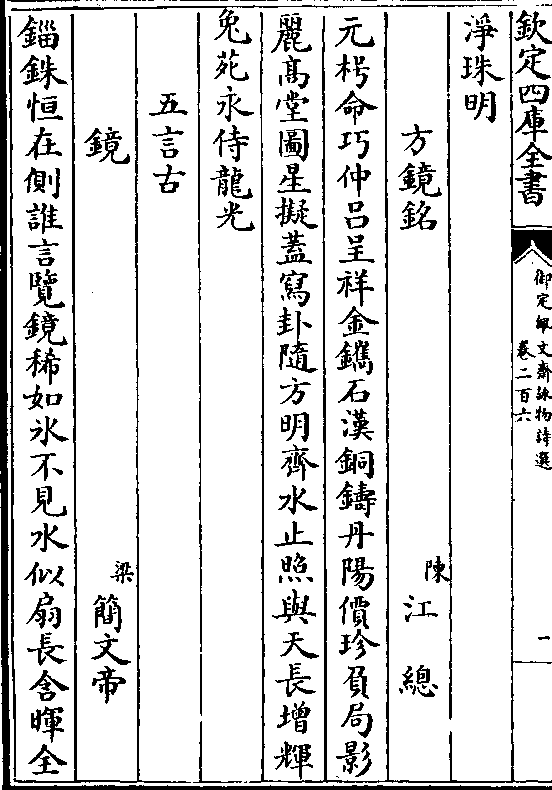 欽定四庫全書
御定佩文齋詠物詩選
卷二百六
一
淨珠明
方鏡銘
陳
江總
元枵命巧仲呂呈祥金鐫石漢銅鑄丹陽價珍負局影
麗髙堂圖星擬蓋寫卦隨方明齊水止照與天長增輝
兔苑永侍龍光
五言古
鏡
梁
簡文帝
錙銖恒在側誰言覽鏡稀如氷不見水似扇長含暉全